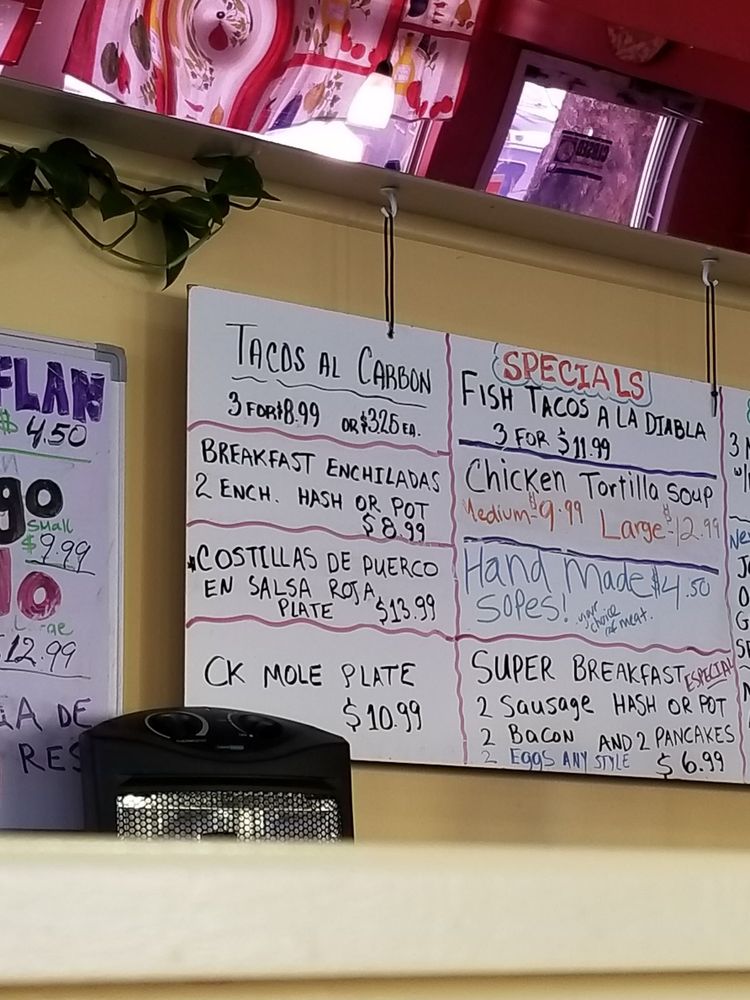 FLAN
$ 4.50
go
SMALL
$9.99
lo
12.99
A DE
RES
TACOS AL CARBON
3 FOR $8.99 OR $3.25 EA.
BREAKFAST ENCHILADAS
2 ENCH. HASH OR POT
$8.99
COSTILLAS DE PUERCO
EN SALSA ROJA
PLATE $13.99
CK MOLE PLATE
$10.99
SPECIALS
FISH TACOS A LA DIABLA
3 FOR $11.99
Chicken Tortilla Soup
Medium-$9.99 Large-$12.99
Hand Made $4.50
SOPES! your choice of meat.
SUPER BREAKFAST ESPECIAL
2 Sausage HASH OR POT
2 Bacon AND 2 PANCAKES
2 Eggs ANY STYLE $6.99